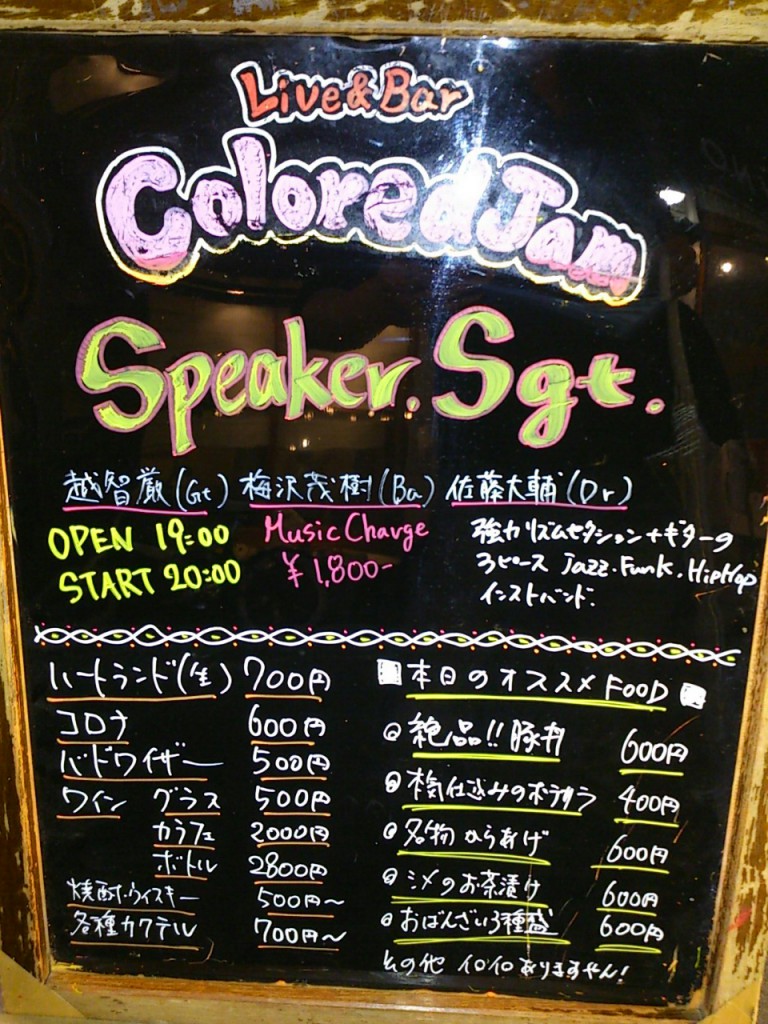 Live&Bar
Colored Jam
Speaker.Sgt.
越智巌(Gt) 梅沢茂樹(Ba) 佐藤大輔(Dr)
OPEN 19:00
START 20:00
Music Charge
¥1,800-
強力リズムセクション+ギターの
3ピース Jazz.Funk.HipHop
インストバンド.
ハートランド(生) 700円
コロナ 600円
バドワイザー 500円
ワイン グラス 500円
カラフェ 2000円
ボトル 2800円
焼酎・ウイスキー 500円〜
各種カクテル 700円〜
本日のオススメ FOOD
◎絶品!!豚丼 600円
◎本気仕込みのポテサラ 400円
◎名物からあげ 600円
◎シメのお茶漬け 600円
◎おばんざい3種盛 600円
その他 イロイロ